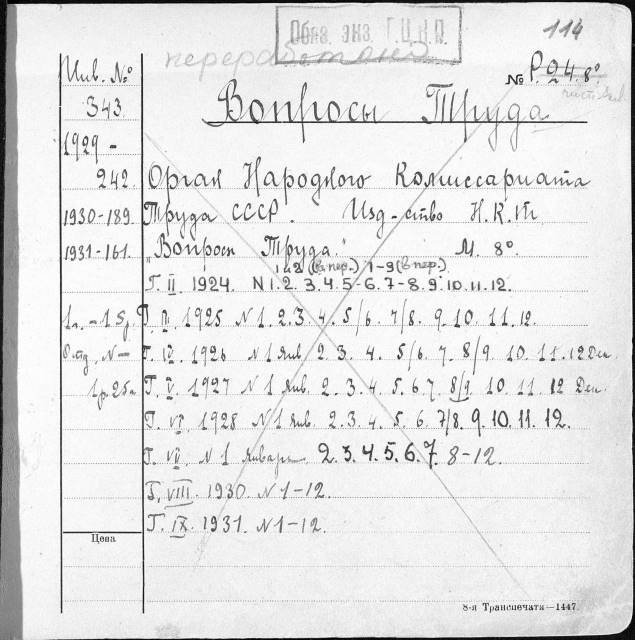 Обяз. экз. Г.Ц.К.П.
114
переработано
Инв. №
№ Р. 94. 8°
343
Вопросы Труда
1929 -
242. Орган Народного Комиссариата
1930-189 Труда СССР. Изд-ство Н.К.Т.
1931-161. „Вопросы Труда." М. 8°
1 и 2 (в пер.) 1-9 (в пер.)
Г. II. 1924. N 1. 2. 3. 4. 5-6. 7-8. 9. 10. 11. 12.
Г. III. 1925 N 1. 2. 3. 4. 5/6. 7/8. 9. 10. 11. 12.
Г. IV. 1926 N 1 Янв. 2. 3. 4. 5/6. 7. 8/9. 10. 11. 12 Дек.
Отд. N-
Г. V. 1927 N 1 Янв. 2. 3. 4. 5. 6. 7. 8/9. 10. 11. 12 Дек.
1р. 25к
Г. VI. 1928 N 1 Янв. 2. 3. 4. 5. 6. 7/8. 9. 10. 11. 12.
Г. VII. N 1 Январь 2. 3. 4. 5. 6. 7. 8-12.
Г. VIII. 1930. N 1-12.
Г. IX. 1931. N 1-12.
Цена
8-я Транспечать—1447.